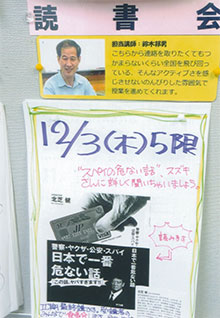 読書会
担当講師：鈴木邦男
こちらから連絡を取りたくてもつ
かまらないくらい全国を飛び回っ
ている。そんなアクティブさを感
じさせないのんびりした雰囲気で
授業を進めてくれます。
12/3(木)5限
"スパイの危ない話"、スズキ
さんに詳しく聞いちゃいましょう。
北芝健
読みます
警察・ヤクザ・公安・スパイ
日本で一番
危ない話
この話、ヤバすぎます!!
日本で一番危ない話